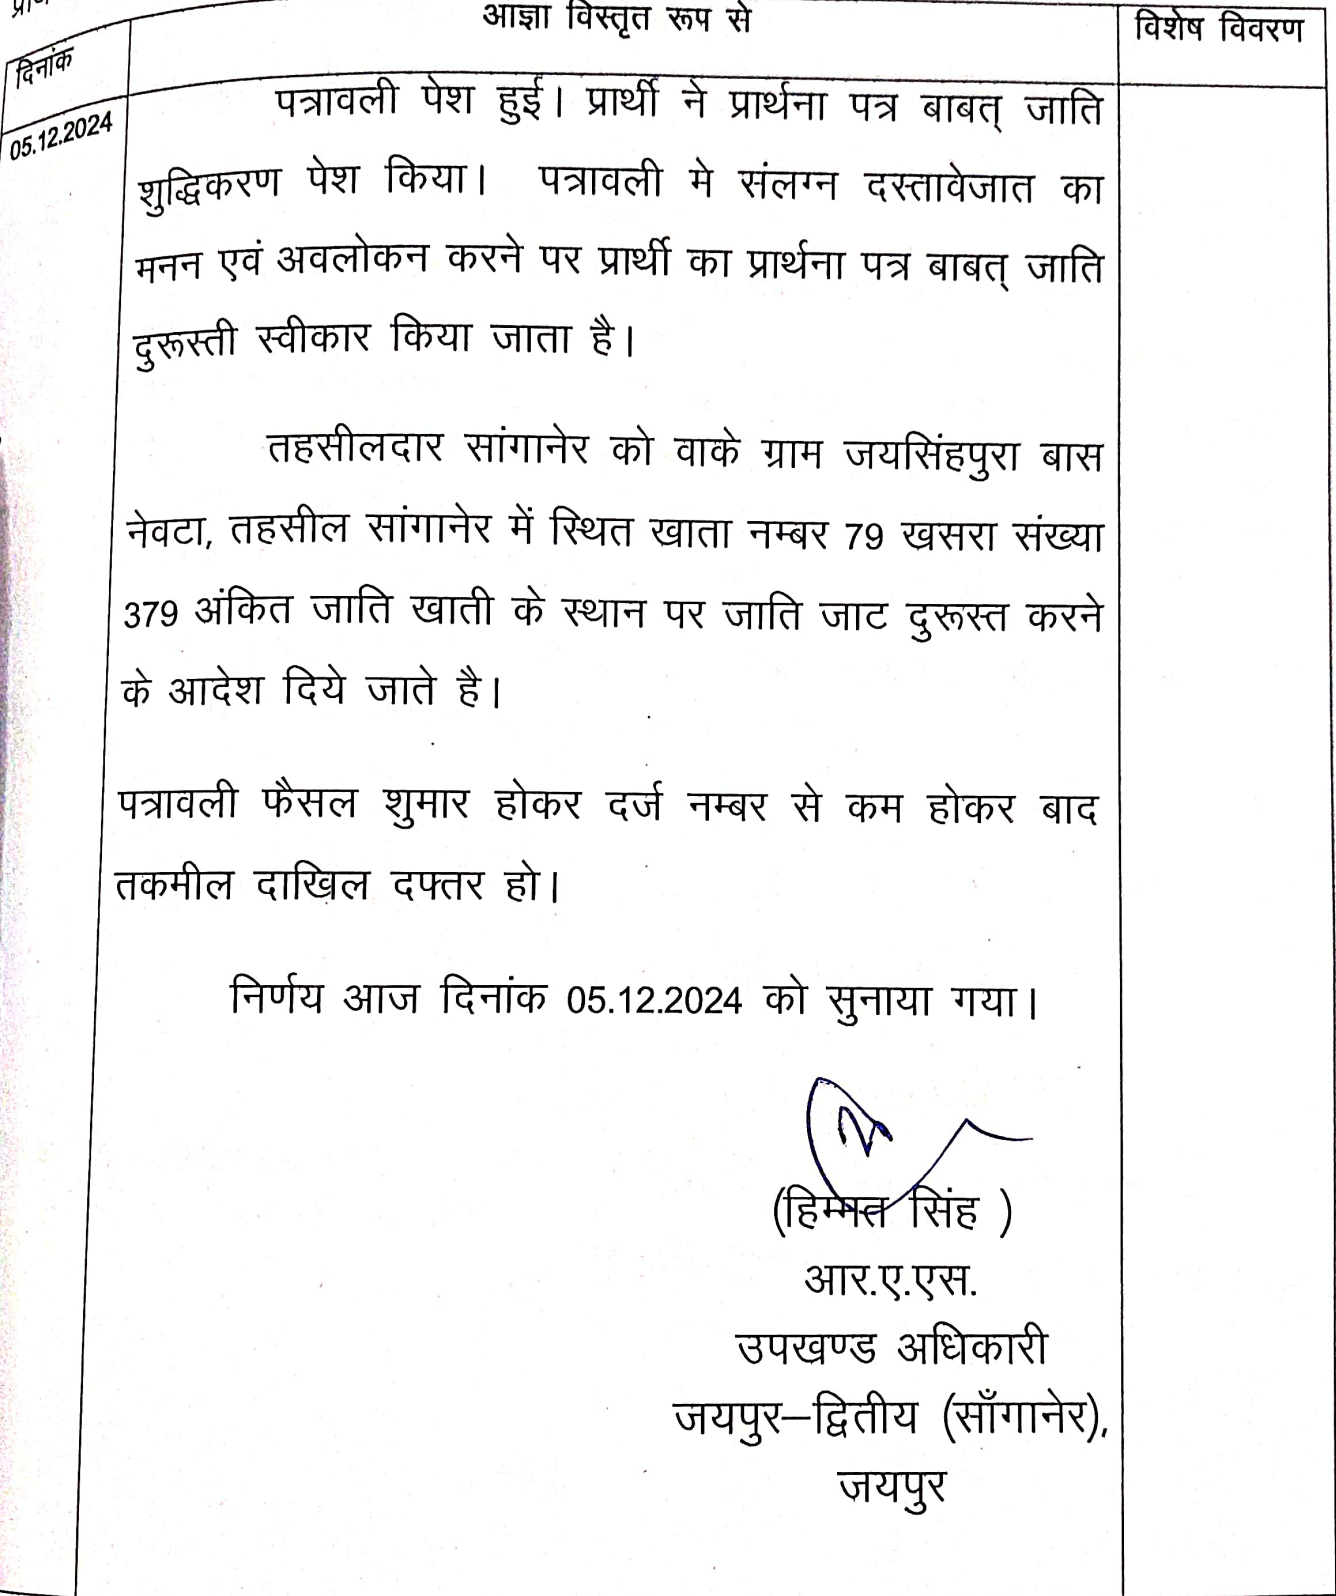 आज्ञा विस्तृत रूप से
विशेष विवरण
दिनांक
05.12.2024
पत्रावली पेश हुई। प्रार्थी ने प्रार्थना पत्र बाबत् जाति
शुद्धिकरण पेश किया। पत्रावली मे संलग्न दस्तावेजात का
मनन एवं अवलोकन करने पर प्रार्थी का प्रार्थना पत्र बाबत् जाति
दुरूस्ती स्वीकार किया जाता है।
तहसीलदार सांगानेर को वाके ग्राम जयसिंहपुरा बास
नेवटा, तहसील सांगानेर में स्थित खाता नम्बर 79 खसरा संख्या
379 अंकित जाति खाती के स्थान पर जाति जाट दुरूस्त करने
के आदेश दिये जाते है।
पत्रावली फैसल शुमार होकर दर्ज नम्बर से कम होकर बाद
तकमील दाखिल दफ्तर हो।
निर्णय आज दिनांक 05.12.2024 को सुनाया गया।
(हिम्मत सिंह )
आर.ए.एस.
उपखण्ड अधिकारी
जयपुर–द्वितीय (साँगानेर),
जयपुर